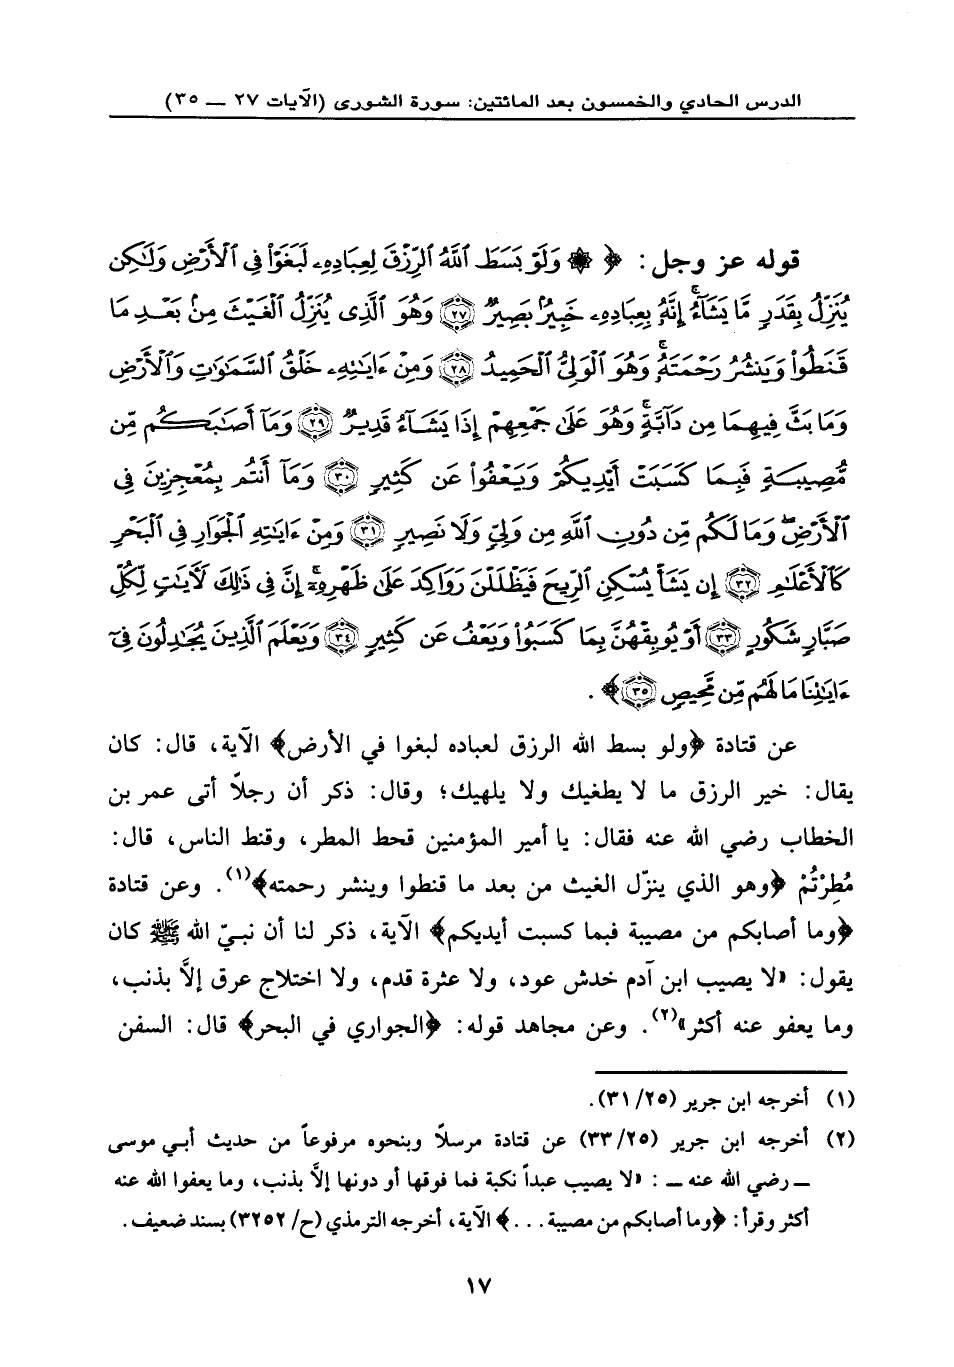 الدرس الحادي والخمسون بعد المائتين: سورة الشورى (الآيات ٢٧ ــ ٣٥)
قوله عز وجل: ﴿ ۞ وَلَوْ بَسَطَ ٱللَّهُ ٱلرِّزْقَ لِعِبَادِهِۦ لَبَغَوْا۟ فِى ٱلْأَرْضِ وَلَٰكِن
يُنَزِّلُ بِقَدَرٍ مَّا يَشَآءُ ۚ إِنَّهُۥ بِعِبَادِهِۦ خَبِيرٌۢ بَصِيرٌ ﴿٢٧﴾ وَهُوَ ٱلَّذِى يُنَزِّلُ ٱلْغَيْثَ مِنۢ بَعْدِ مَا
قَنَطُوا۟ وَيَنشُرُ رَحْمَتَهُۥ ۚ وَهُوَ ٱلْوَلِىُّ ٱلْحَمِيدُ ﴿٢٨﴾ وَمِنْ ءَايَٰتِهِۦ خَلْقُ ٱلسَّمَٰوَٰتِ وَٱلْأَرْضِ
وَمَا بَثَّ فِيهِمَا مِن دَآبَّةٍ ۚ وَهُوَ عَلَىٰ جَمْعِهِمْ إِذَا يَشَآءُ قَدِيرٌ ﴿٢٩﴾ وَمَآ أَصَٰبَكُم مِّن
مُّصِيبَةٍ فَبِمَا كَسَبَتْ أَيْدِيكُمْ وَيَعْفُوا۟ عَن كَثِيرٍ ﴿٣٠﴾ وَمَآ أَنتُم بِمُعْجِزِينَ فِى
ٱلْأَرْضِ ۖ وَمَا لَكُم مِّن دُونِ ٱللَّهِ مِن وَلِىٍّ وَلَا نَصِيرٍ ﴿٣١﴾ وَمِنْ ءَايَٰتِهِ ٱلْجَوَارِ فِى ٱلْبَحْرِ
كَٱلْأَعْلَٰمِ ﴿٣٢﴾ إِن يَشَأْ يُسْكِنِ ٱلرِّيحَ فَيَظْلَلْنَ رَوَاكِدَ عَلَىٰ ظَهْرِهِۦٓ ۚ إِنَّ فِى ذَٰلِكَ لَءَايَٰتٍ لِّكُلِّ
صَبَّارٍ شَكُورٍ ﴿٣٣﴾ أَوْ يُوبِقْهُنَّ بِمَا كَسَبُوا۟ وَيَعْفُ عَن كَثِيرٍ ﴿٣٤﴾ وَيَعْلَمَ ٱلَّذِينَ يُجَٰدِلُونَ فِىٓ
ءَايَٰتِنَا مَا لَهُم مِّن مَّحِيصٍ ﴿٣٥﴾ ﴾ .
عن قتادة ﴿ولو بسط الله الرزق لعباده لبغوا في الأرض﴾ الآية، قال: كان
يقال: خير الرزق ما لا يطغيك ولا يلهيك؛ وقال: ذكر أن رجلاً أتى عمر بن
الخطاب رضي الله عنه فقال: يا أمير المؤمنين قحط المطر، وقنط الناس، قال:
مُطِرْتُمْ ﴿وهو الذي ينزّل الغيث من بعد ما قنطوا وينشر رحمته﴾(١). وعن قتادة
﴿وما أصابكم من مصيبة فبما كسبت أيديكم﴾ الآية، ذكر لنا أن نبيّ الله ﷺ كان
يقول: «لا يصيب ابن آدم خدش عود، ولا عثرة قدم، ولا اختلاج عرق إلاَّ بذنب،
وما يعفو عنه أكثر»(٢). وعن مجاهد قوله: ﴿الجواري في البحر﴾ قال: السفن
(١) أخرجه ابن جرير (٣١/٢٥).
(٢) أخرجه ابن جرير (٣٣/٢٥) عن قتادة مرسلاً وبنحوه مرفوعاً من حديث أبي موسى
ــ رضي الله عنه ــ : «لا يصيب عبداً نكبة فما فوقها أو دونها إلاَّ بذنب، وما يعفوا الله عنه
أكثر وقرأ: ﴿وما أصابكم من مصيبة . . .﴾ الآية، أخرجه الترمذي (ح/ ٣٢٥٢) بسند ضعيف.
١٧